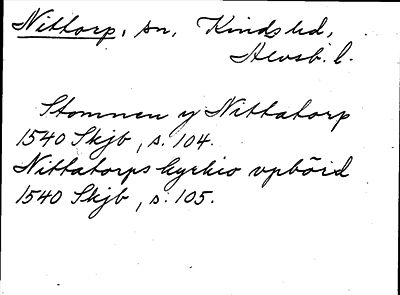 Nittorp, sn, Kinds hd,
Älvsb. l.
Stomnen y Nittatorp
1540 Skjb, s. 104.
Nittatorps kyrkio vpbörd
1540 Skjb, s. 105.